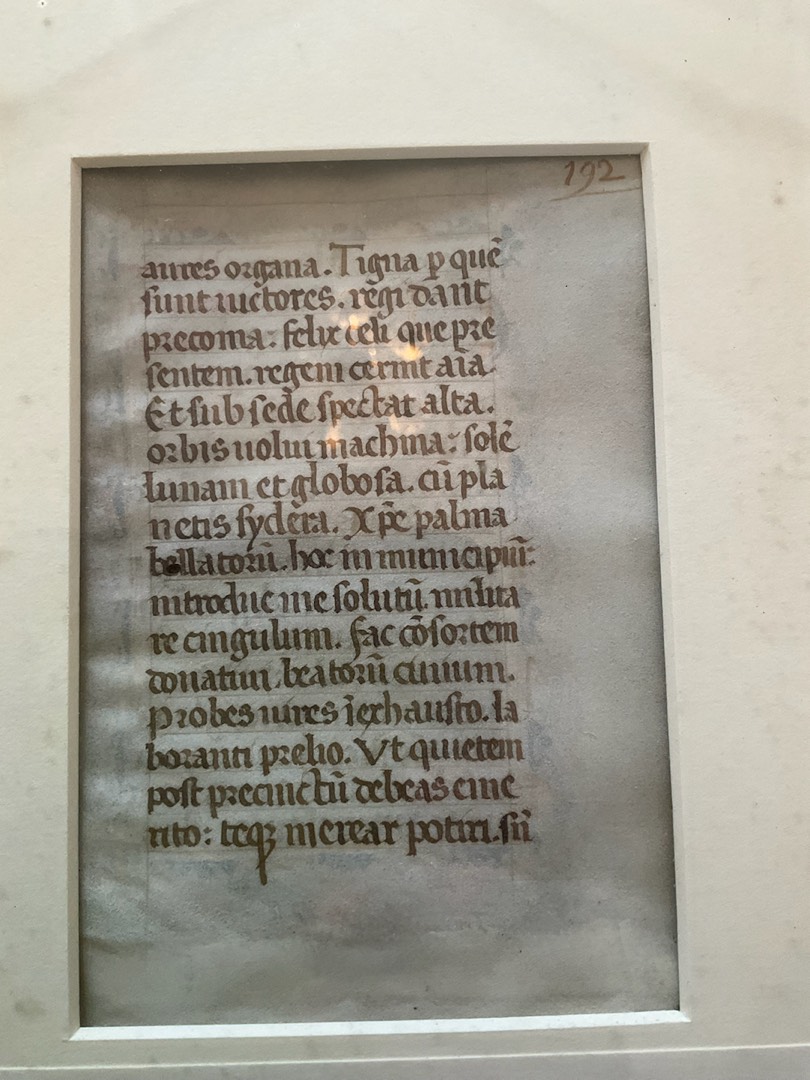 192
aures organa. Tigna p quē
sunt uictores. rēgi dant
precoma: felix celi que pre
sentem. regem cernit aīa
Et sub sede spectat alta.
orbis uolui machina: solē
lunam et globosa. cū pla
netis sydera. Xp̄e palma
bellatorū. hoc in municipiū:
introduc me solutū. milita
re cingulum. fac cōsortem
donatiui beatorū ciuium.
Probes uires īexhausto. la
boranti prelio. Vt quietem
post precinctū debeas eme
rito: teqꝫ merear potiri. sn̄